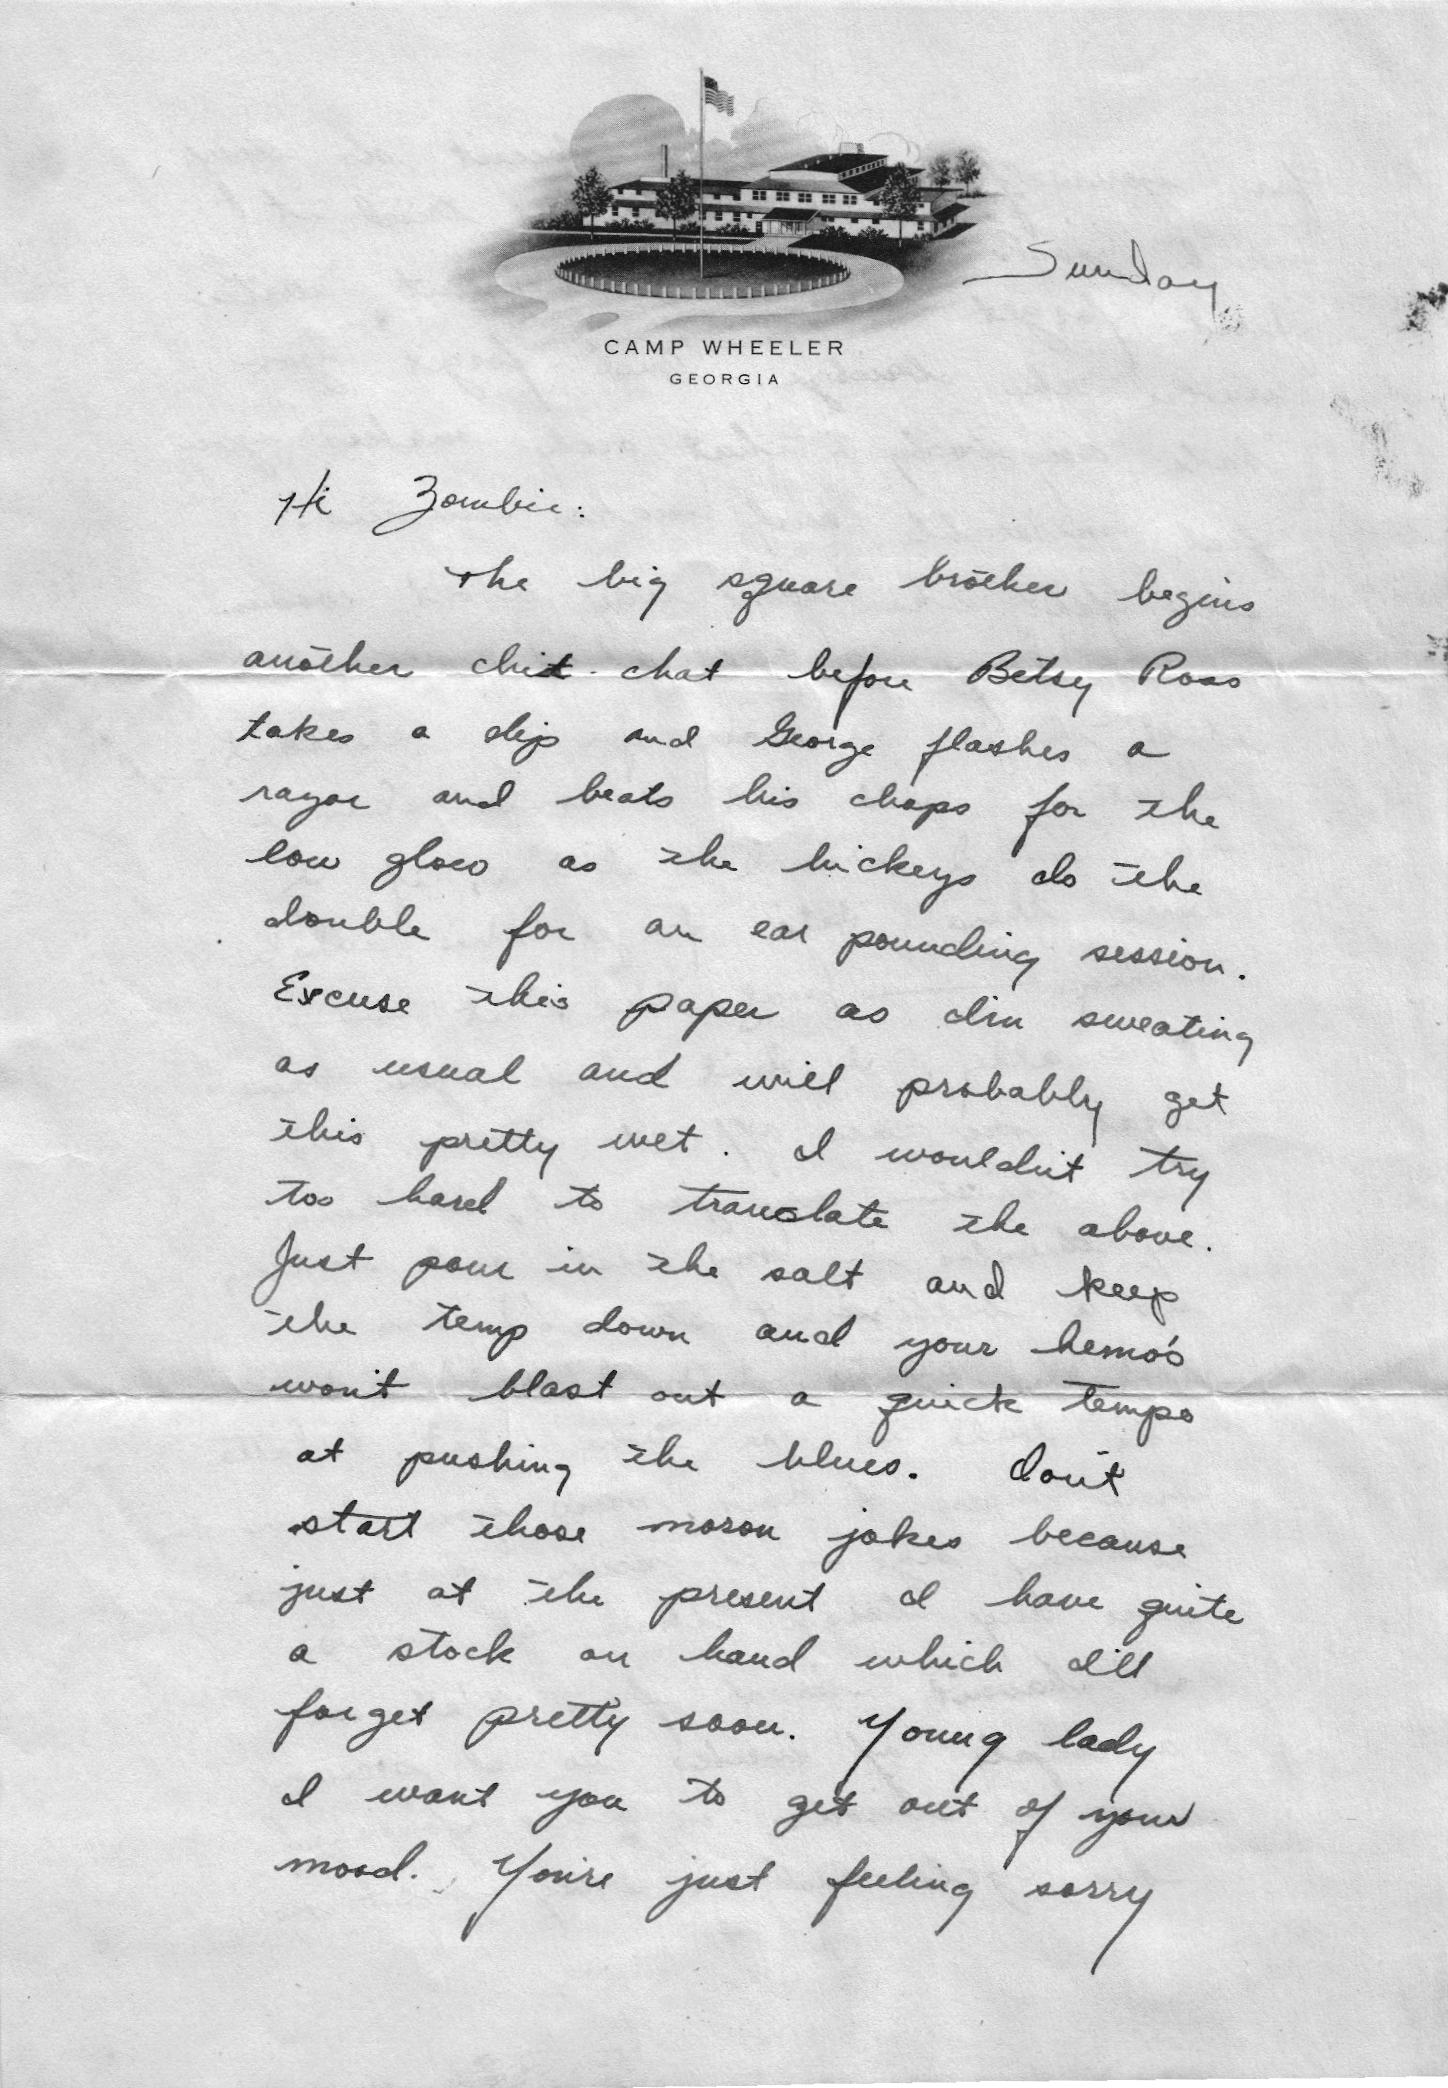 Sunday
CAMP WHEELER
GEORGIA
Hi Zombie:
The big square brother begins
another chit-chat before Betsy Ross
takes a dip and George flashes a
razor and beats his chops for the
low glow as the hickeys do the
double for an ear pounding session.
Excuse this paper as I'm sweating
as usual and will probably get
this pretty wet. I wouldn't try
too hard to translate the above.
Just pour in the salt and keep
the temp down and your hemo's
won't blast out a quick tempo
at pushing the blues. Don't
start those moron jokes because
just at the present I have quite
a stock on hand which I'll
forget pretty soon. Young lady
I want you to get out of your
mood. You're just feeling sorry